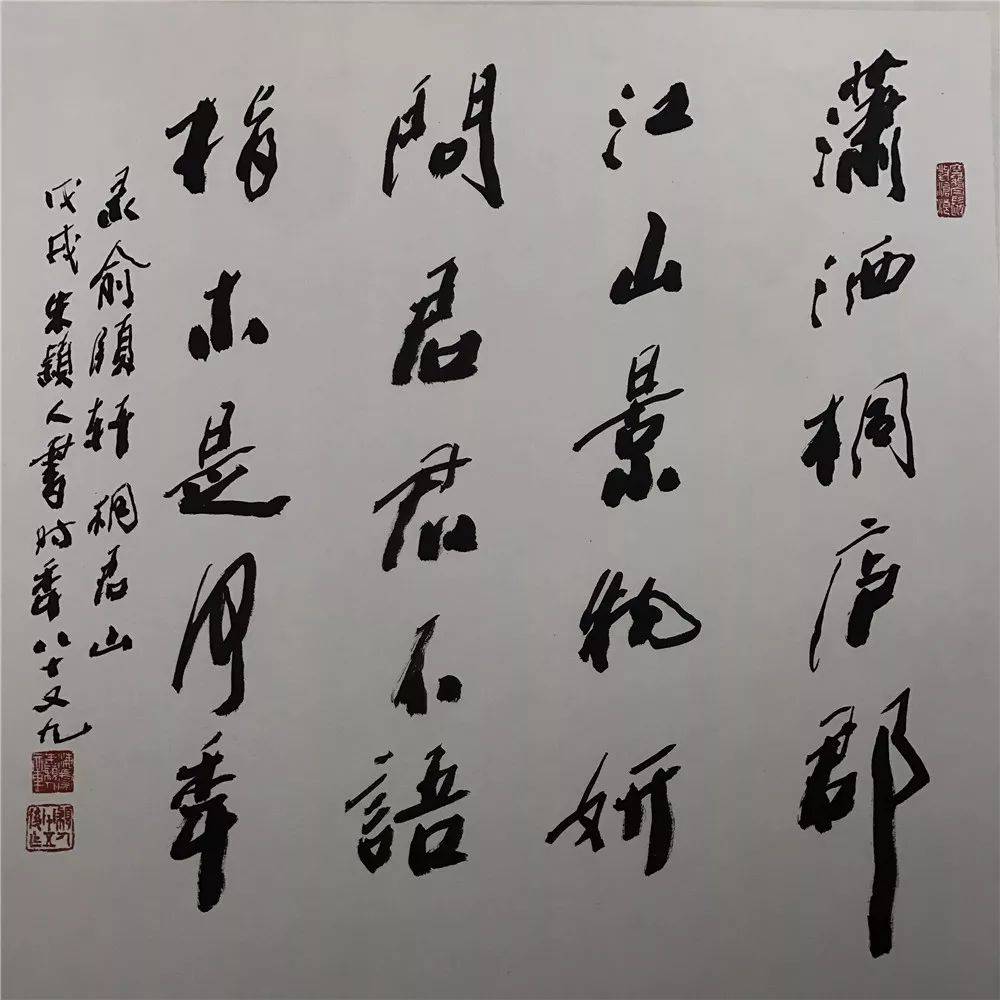 瀟洒桐庐郡
江山景物妍
問君君不語
指木是何年
录俞頤轩桐君山
戊戌朱穎人書时年八十又九